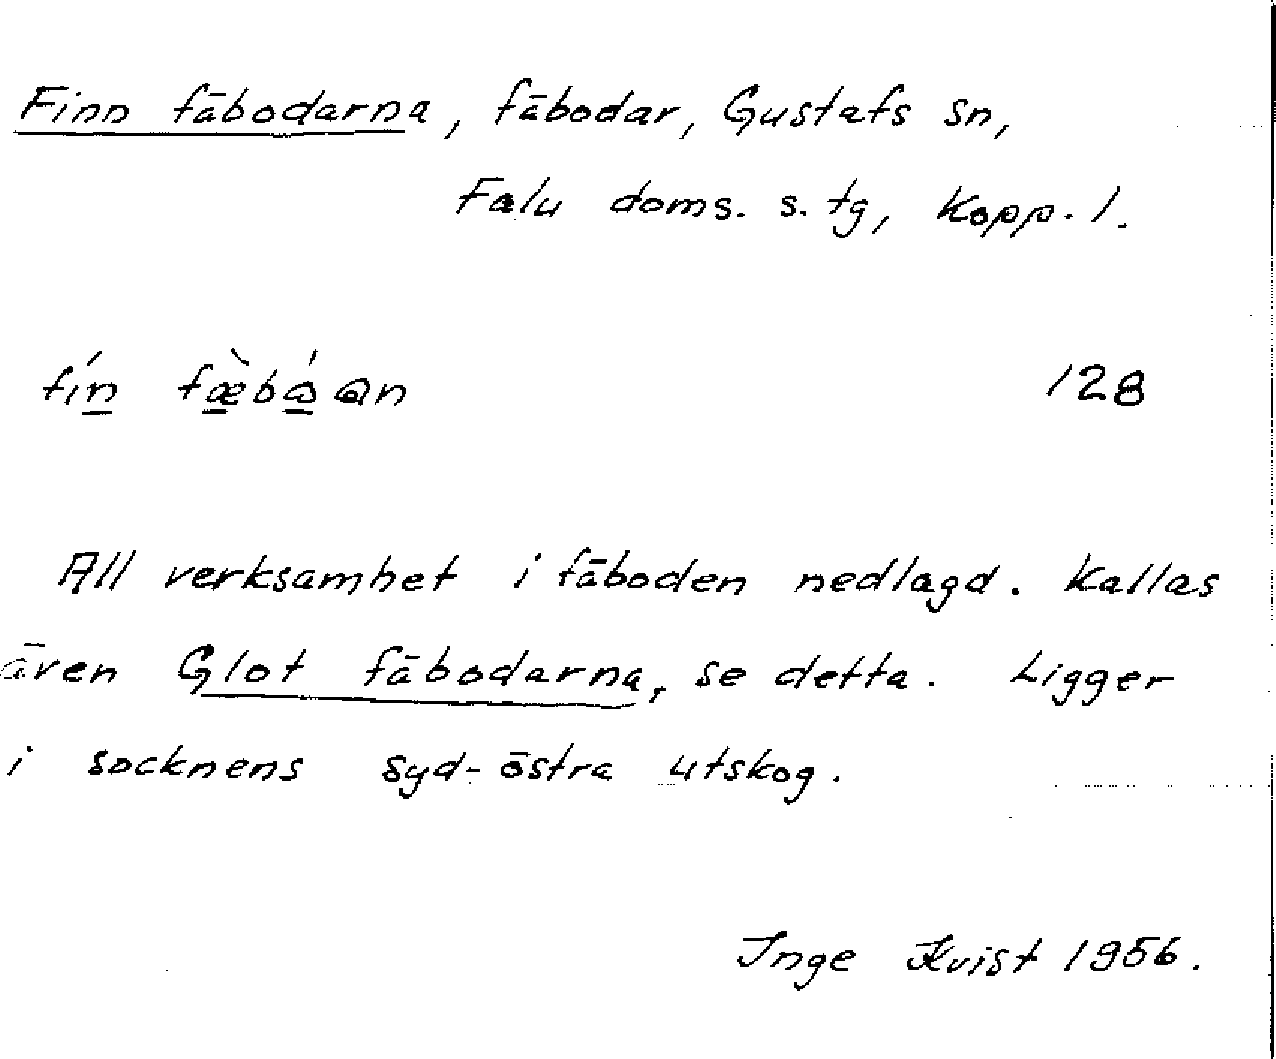 Finn fäbodarna, fäbodar, Gustafs sn,
Falu doms. s. tg, Kopp. l.
128
All verksamhet i fäboden nedlagd. Kallas
även Glot fäbodarna, se detta. Ligger
i socknens syd-östra utskog.
Inge Kvist 1956.